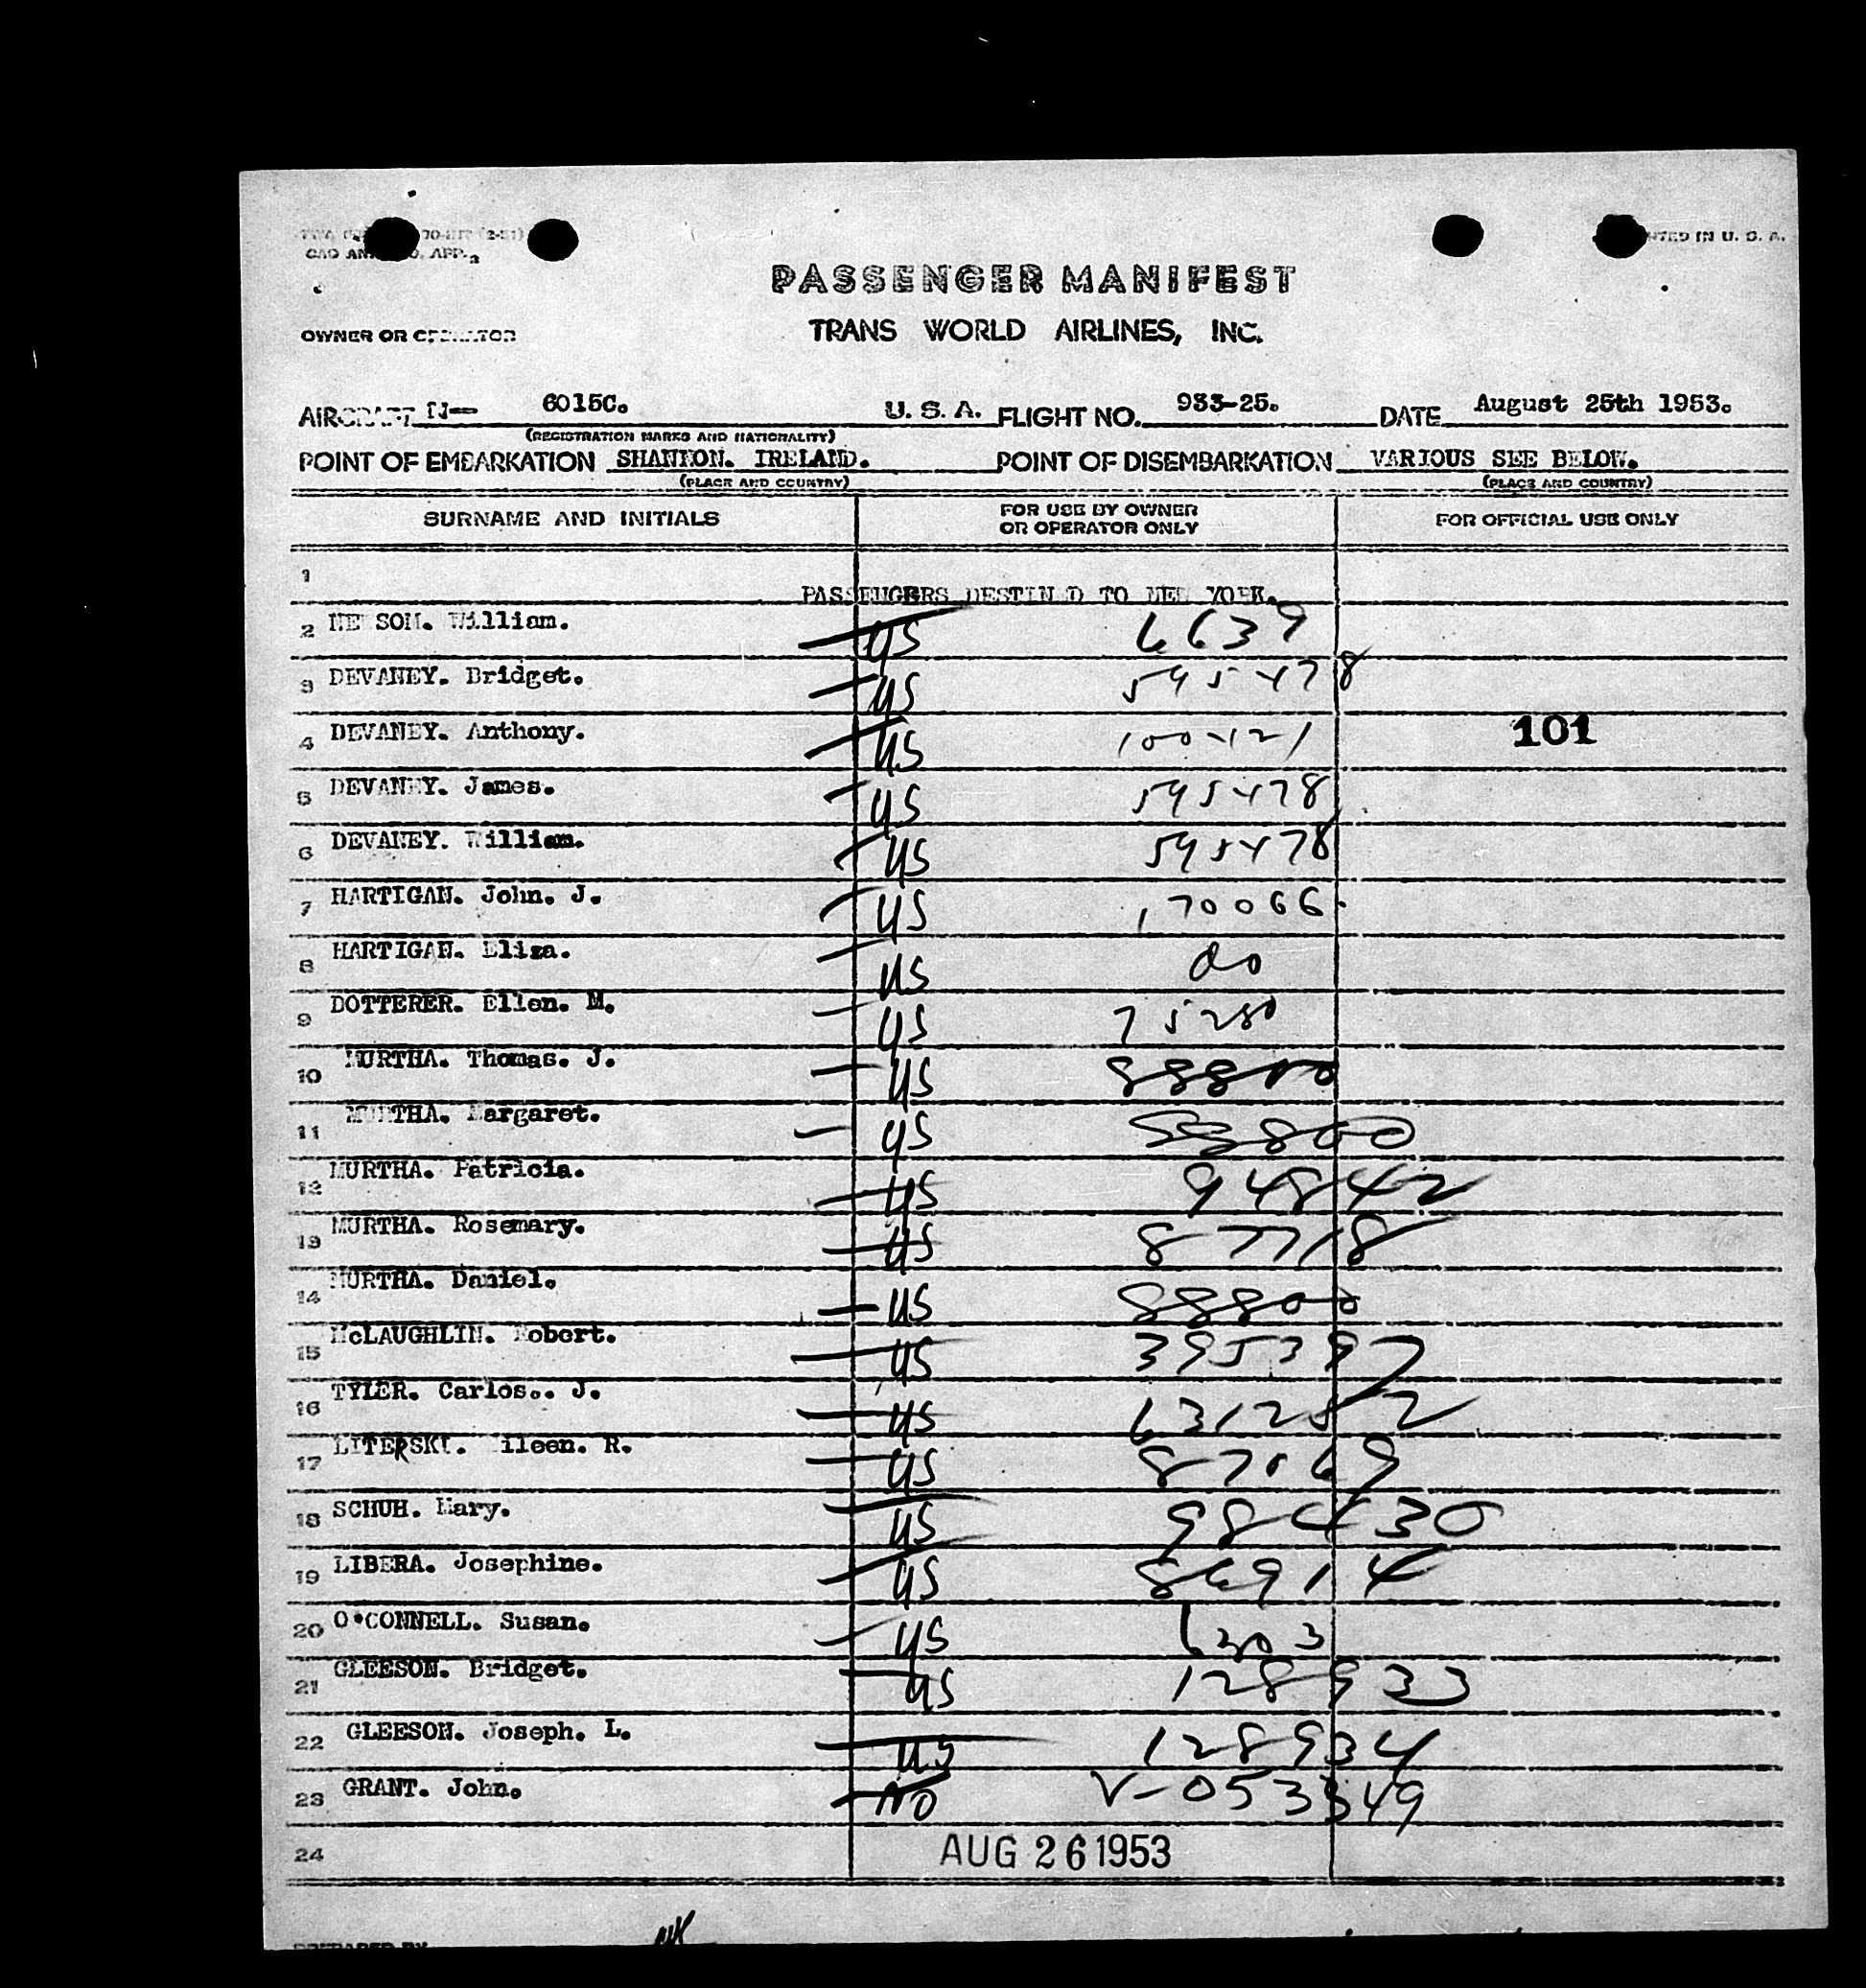 PRINTED IN U. S. A.
PASSENGER MANIFEST
OWNER OR OPERATOR TRANS WORLD AIRLINES, INC.
AIRCRAFT N— 6015C. U. S. A. FLIGHT NO. 933-25. DATE August 25th 1953.
(REGISTRATION MARKS AND NATIONALITY)
POINT OF EMBARKATION SHANNON. IRELAND. POINT OF DISEMBARKATION VARIOUS SEE BELOW.
(PLACE AND COUNTRY) (PLACE AND COUNTRY)
SURNAME AND INITIALS FOR USE BY OWNER OR OPERATOR ONLY FOR OFFICIAL USE ONLY
1 PASSENGERS DESTINED TO NEW YORK.
2 William. US 6639
3 DEVANEY. Bridget. US 595478
4 DEVANEY. Anthony. US 100121 101
5 DEVANEY. James. US 595478
6 DEVANEY. William. US 595478
7 HARTIGAN. John. J. US 170066
8 HARTIGAN. Eliza. US do
9 DOTTERER. Ellen. M. US 75280
10 MURTHA. Thomas. J. US 88800
11 MURTHA. Margaret. US 88800
12 MURTHA. Patricia. US 94842
13 MURTHA. Rosemary. US 87718
14 MURTHA. Daniel. US 88800
15 McLAUGHLIN. Robert. US 395397
16 TYLER. Carlos.. J. US 631252
17 LITERSKI. Eileen. R. US 87069
18 SCHUH. Mary. US 98430
19 LIBERA. Josephine. US 86914
20 O'CONNELL. Susan. US 6303
21 GLEESON. Bridget. US 128933
22 GLEESON. Joseph. L. US 128934
23 GRANT. John. NO V-053349
24 AUG 26 1953
PREPARED BY